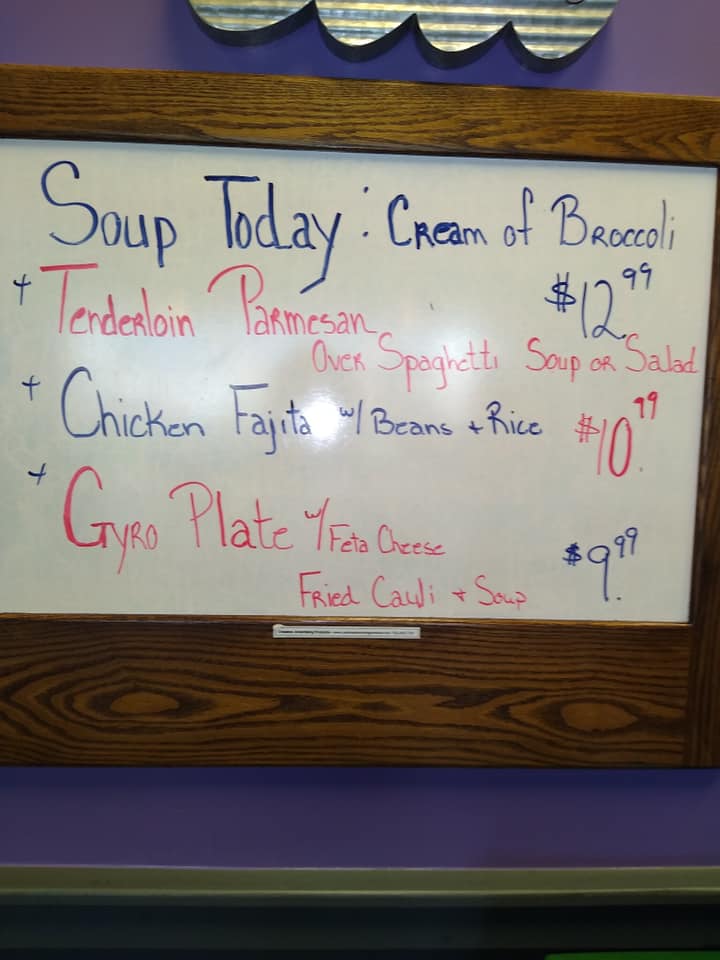 Soup Today: Cream of Broccoli
+ Tenderloin Parmesan $12.99
Over Spaghetti Soup or Salad
+ Chicken Fajita w/ Beans + Rice $10.99
+ Gyro Plate w/ Feta Cheese
Fried Cauli + Soup $9.99